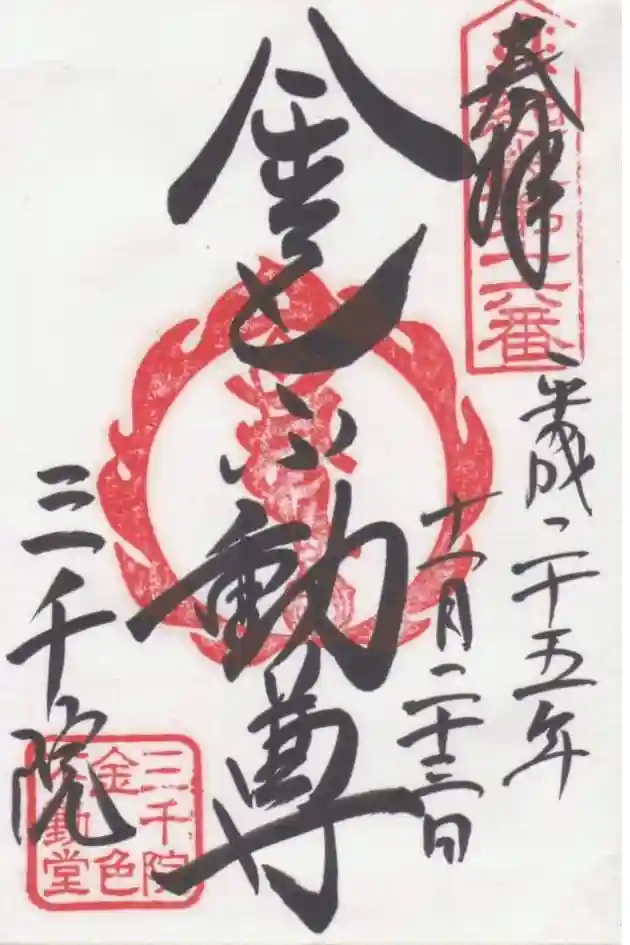 奉拝
第十六番
平成二十五年
十一月二十三日
金色不動尊
三千院
三千院
金色
不動堂